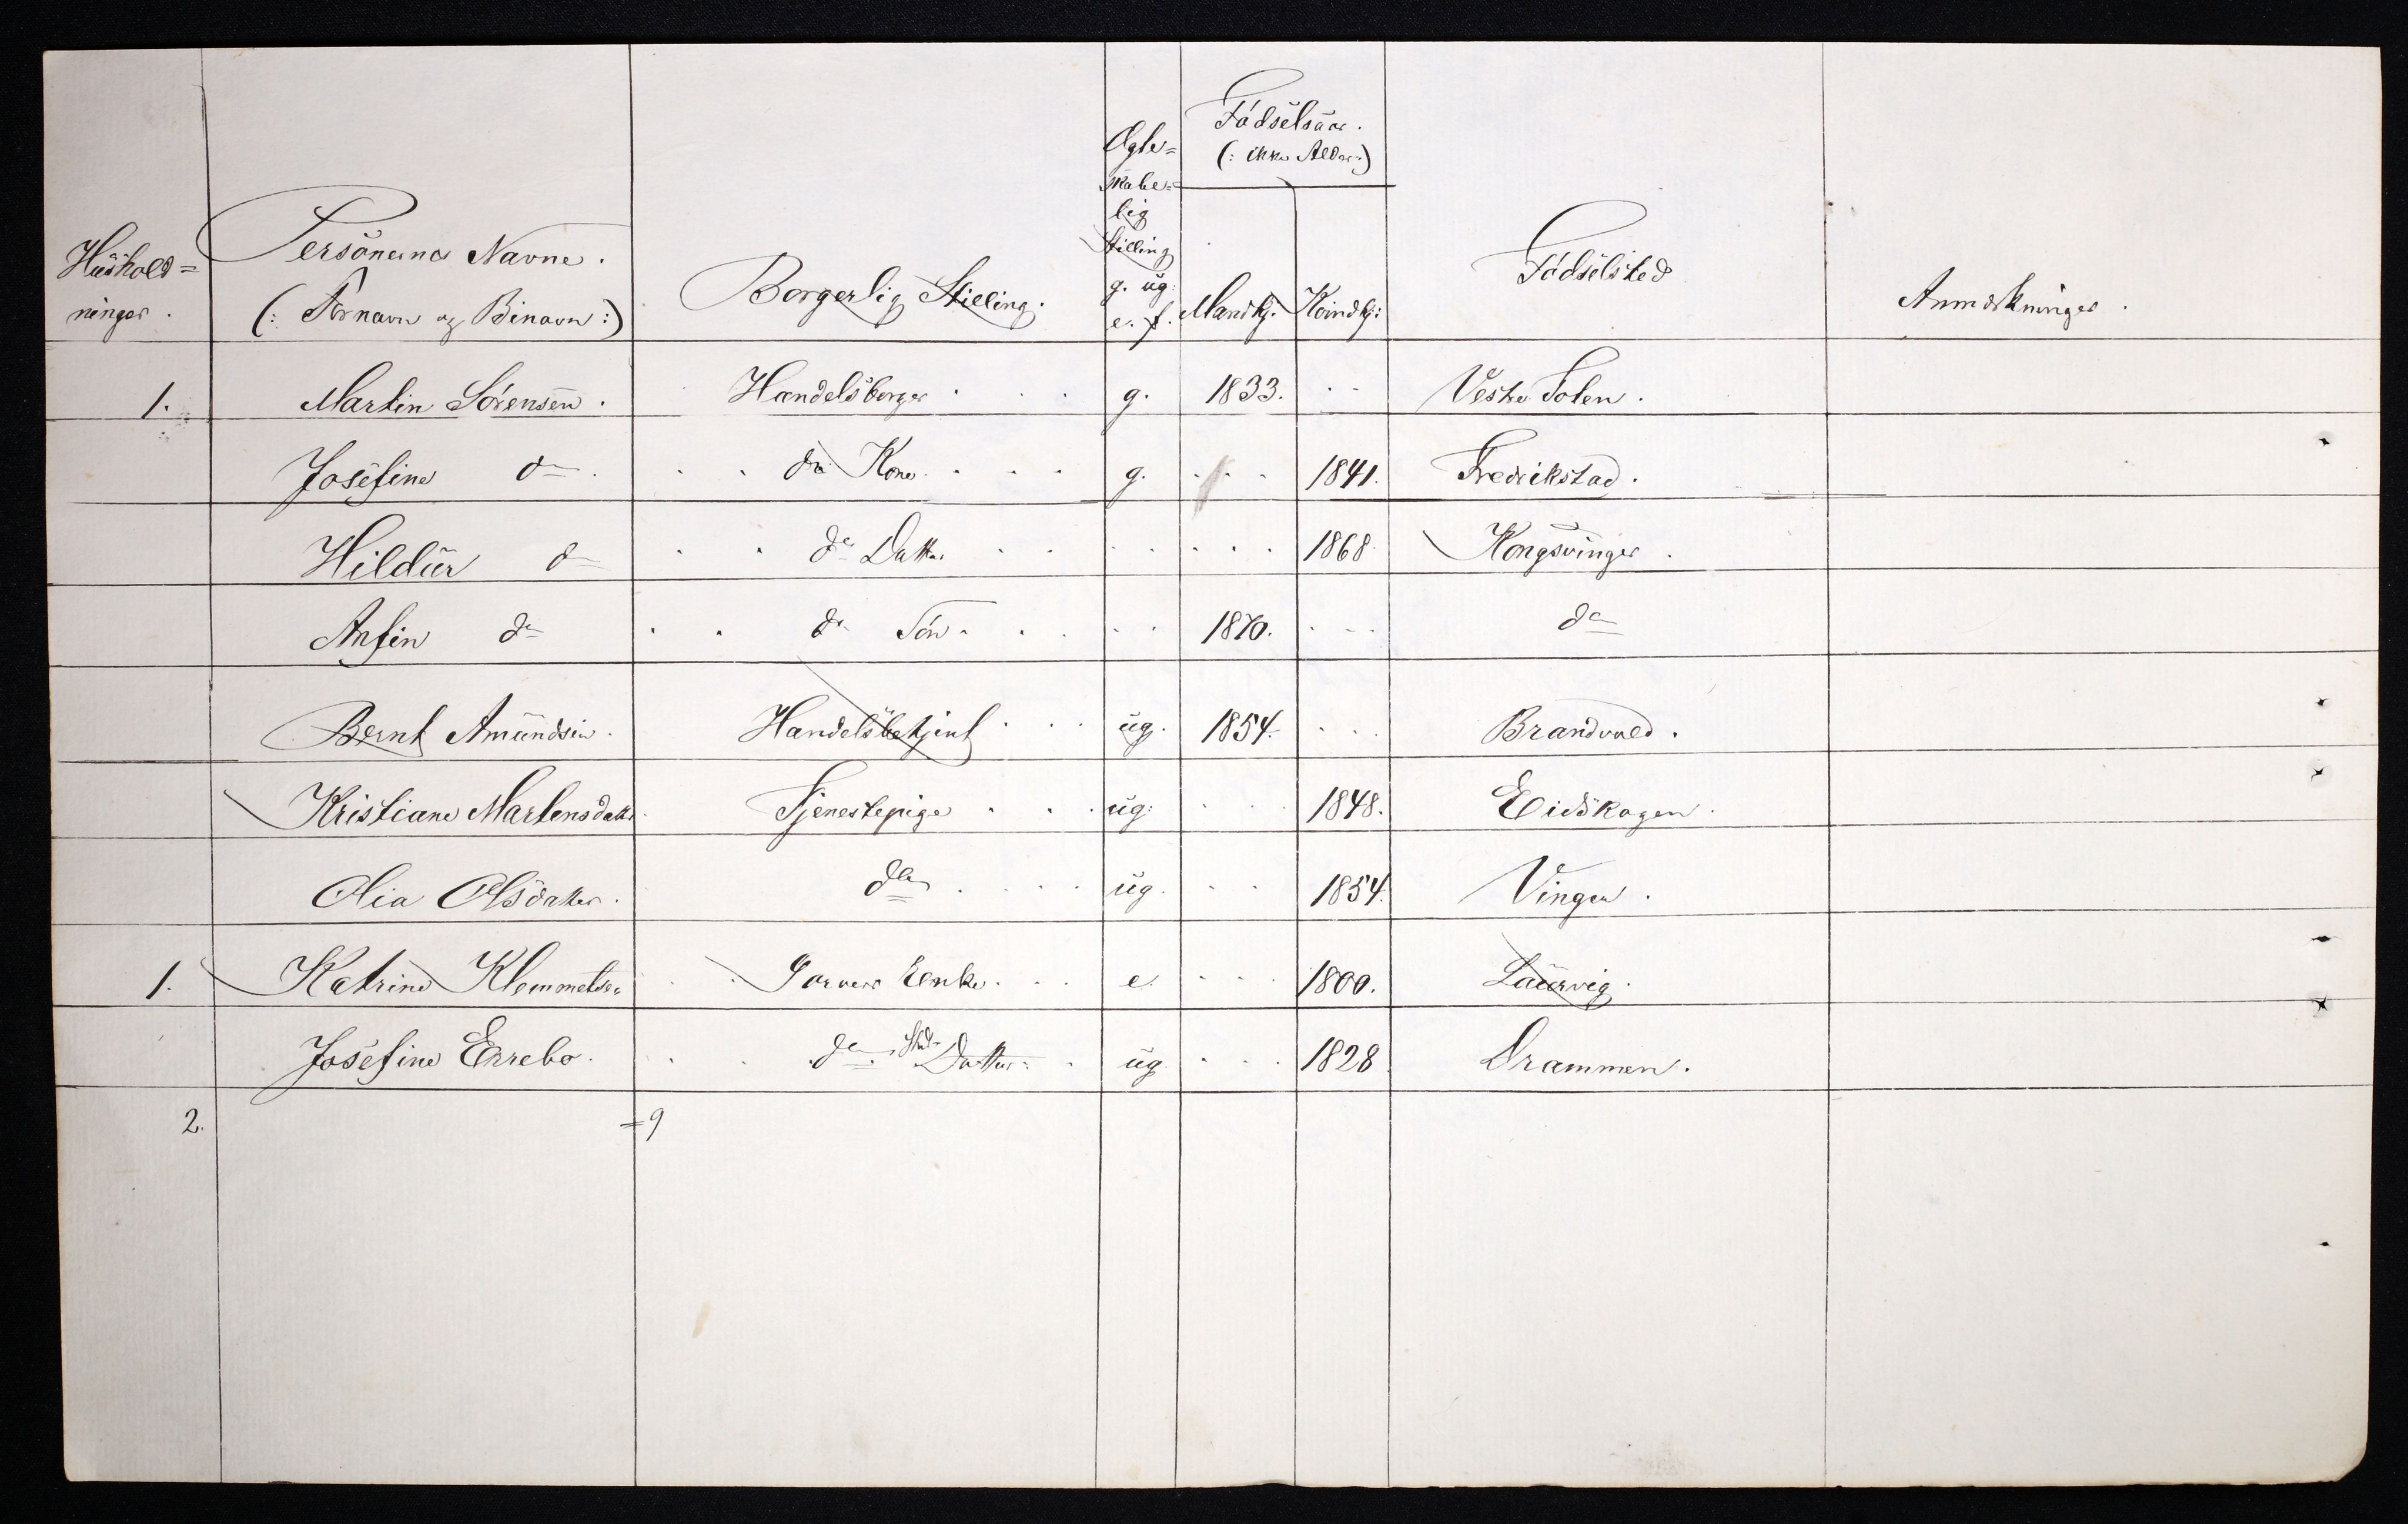 Fødselsaar.
(: ikke Alder:)
Husholdninger.
Personernes Navne.
(: Fornavn og Binavn:)
Borgerlig Stilling.
Ægteskabelig Stilling
g. ug:
e. f.
Mandkj.
Kvindkj:
Fødselsted
Anmærkninger.
1. Martin Sørensen. Handelsborger . . . g. 1833. . . Vestre Toten.
Josefine do. . . ds Kone . . . . g. . . . 1841. Fredrikstad.
Hildur do . . ds Datter . . . . . . . 1868. Kongsvinger.
Anfin do . . ds Søn . . . . . 1870. . . . do
Bernt Amundsen. Handelsbetjent . . . ug. 1854. . . . Brandvold.
Kristiane Martensdatter. Tjenestepige . . . ug: . . . 1848. Eidskogen.
Olia Olsdatter. do . . . . ug. . . . 1854. Vinger.
1. Katrine Klemmetsen . . Enke . . . e. . . . 1800. Laurvig.
Josefine Errebo. . . ds Sted Datter: . ug. . . . 1828 Drammen.
2. = 9